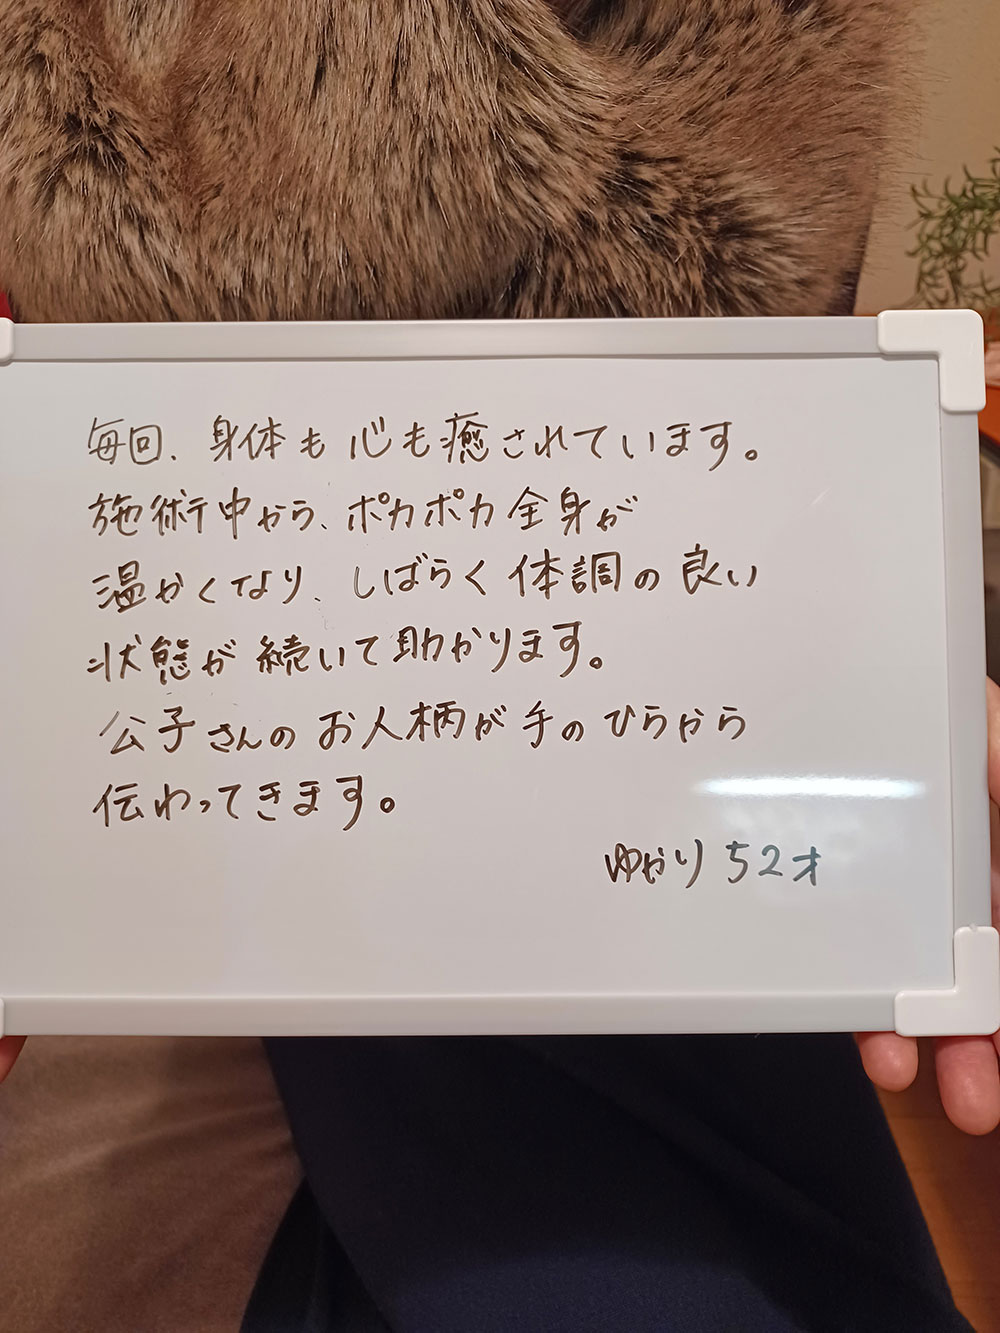 毎回、身体も心も癒されています。
施術中から、ポカポカ全身が
温かくなり、しばらく体調の良い
状態が続いて助かります。
公子さんのお人柄が手のひらから
伝わってきます。
ゆかり 52才